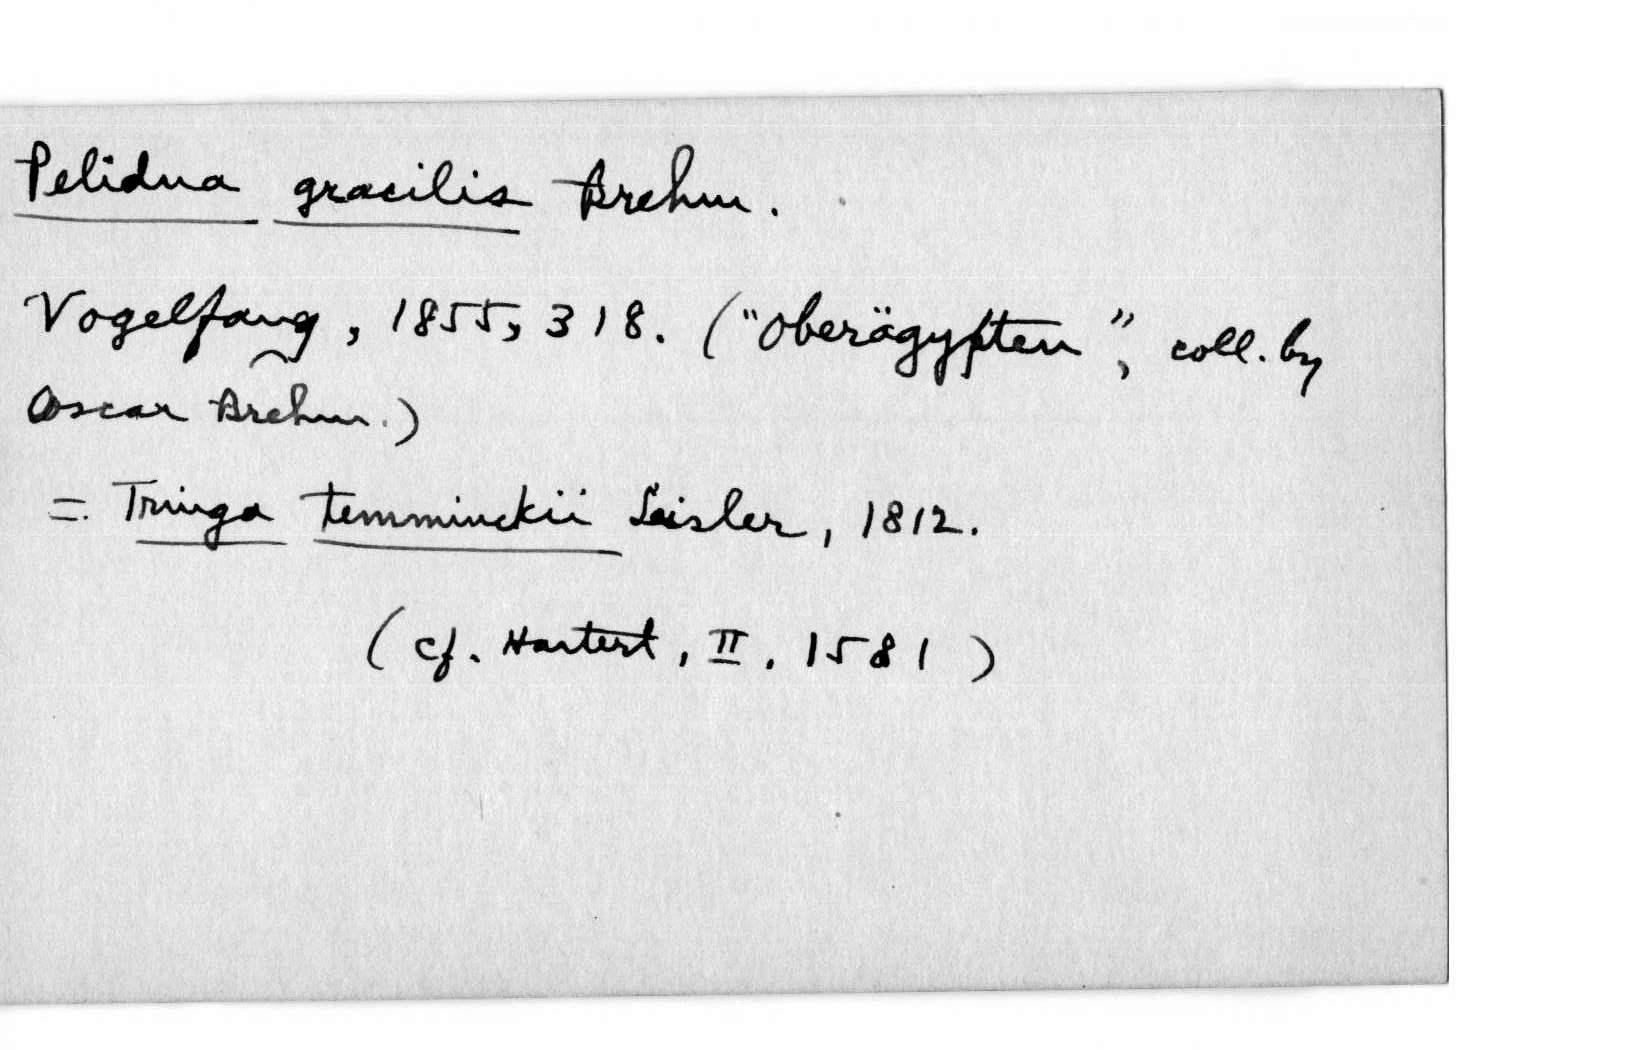 Pelidna gracilis Brehm.
Vogelfang, 1855, 318. ("Oberägypten", coll. by
Oscar Brehm.)
= Tringa temminckii Leisler, 1812.
(cf. Hartert, II. 1581)